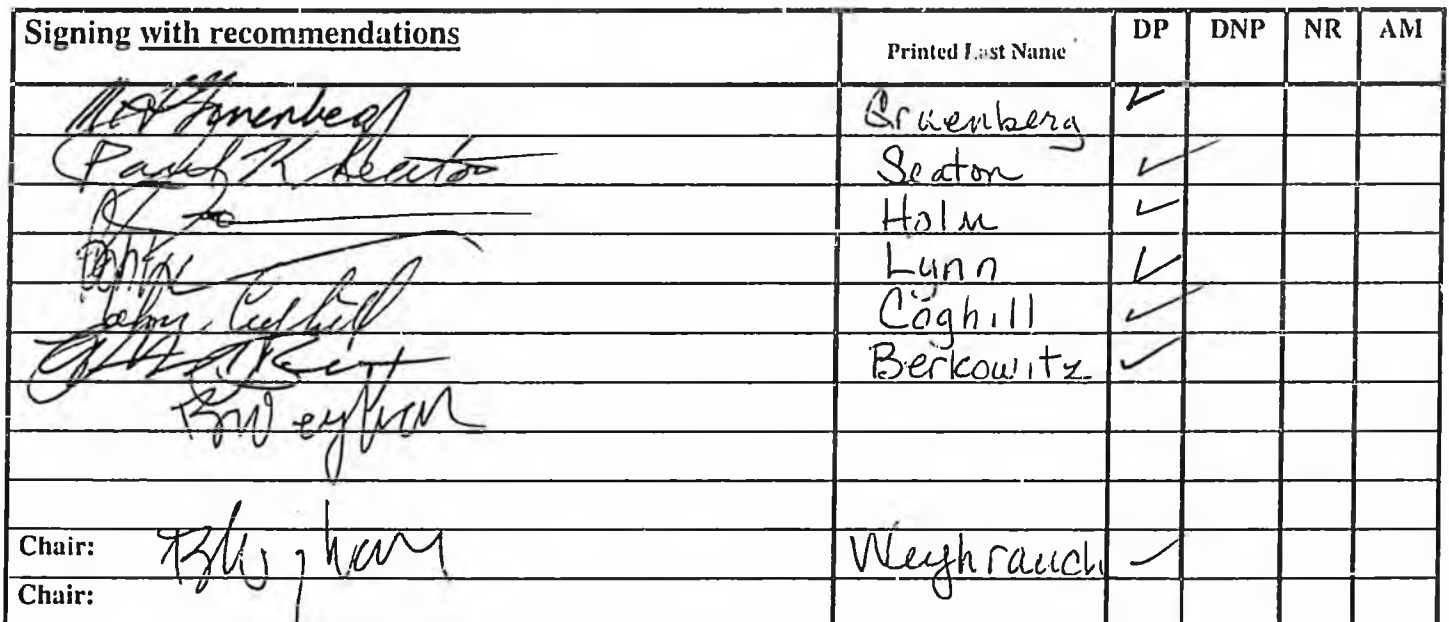 Signing with recommendations Printed Last Name DP DNP NR AM
Gruenberg ✓
Paul K Seaton Seaton ✓
Holm ✓
Lynn ✓
John Coghill Coghill ✓
Berkowitz ✓
Chair: Weyhrauch ✓
Chair: